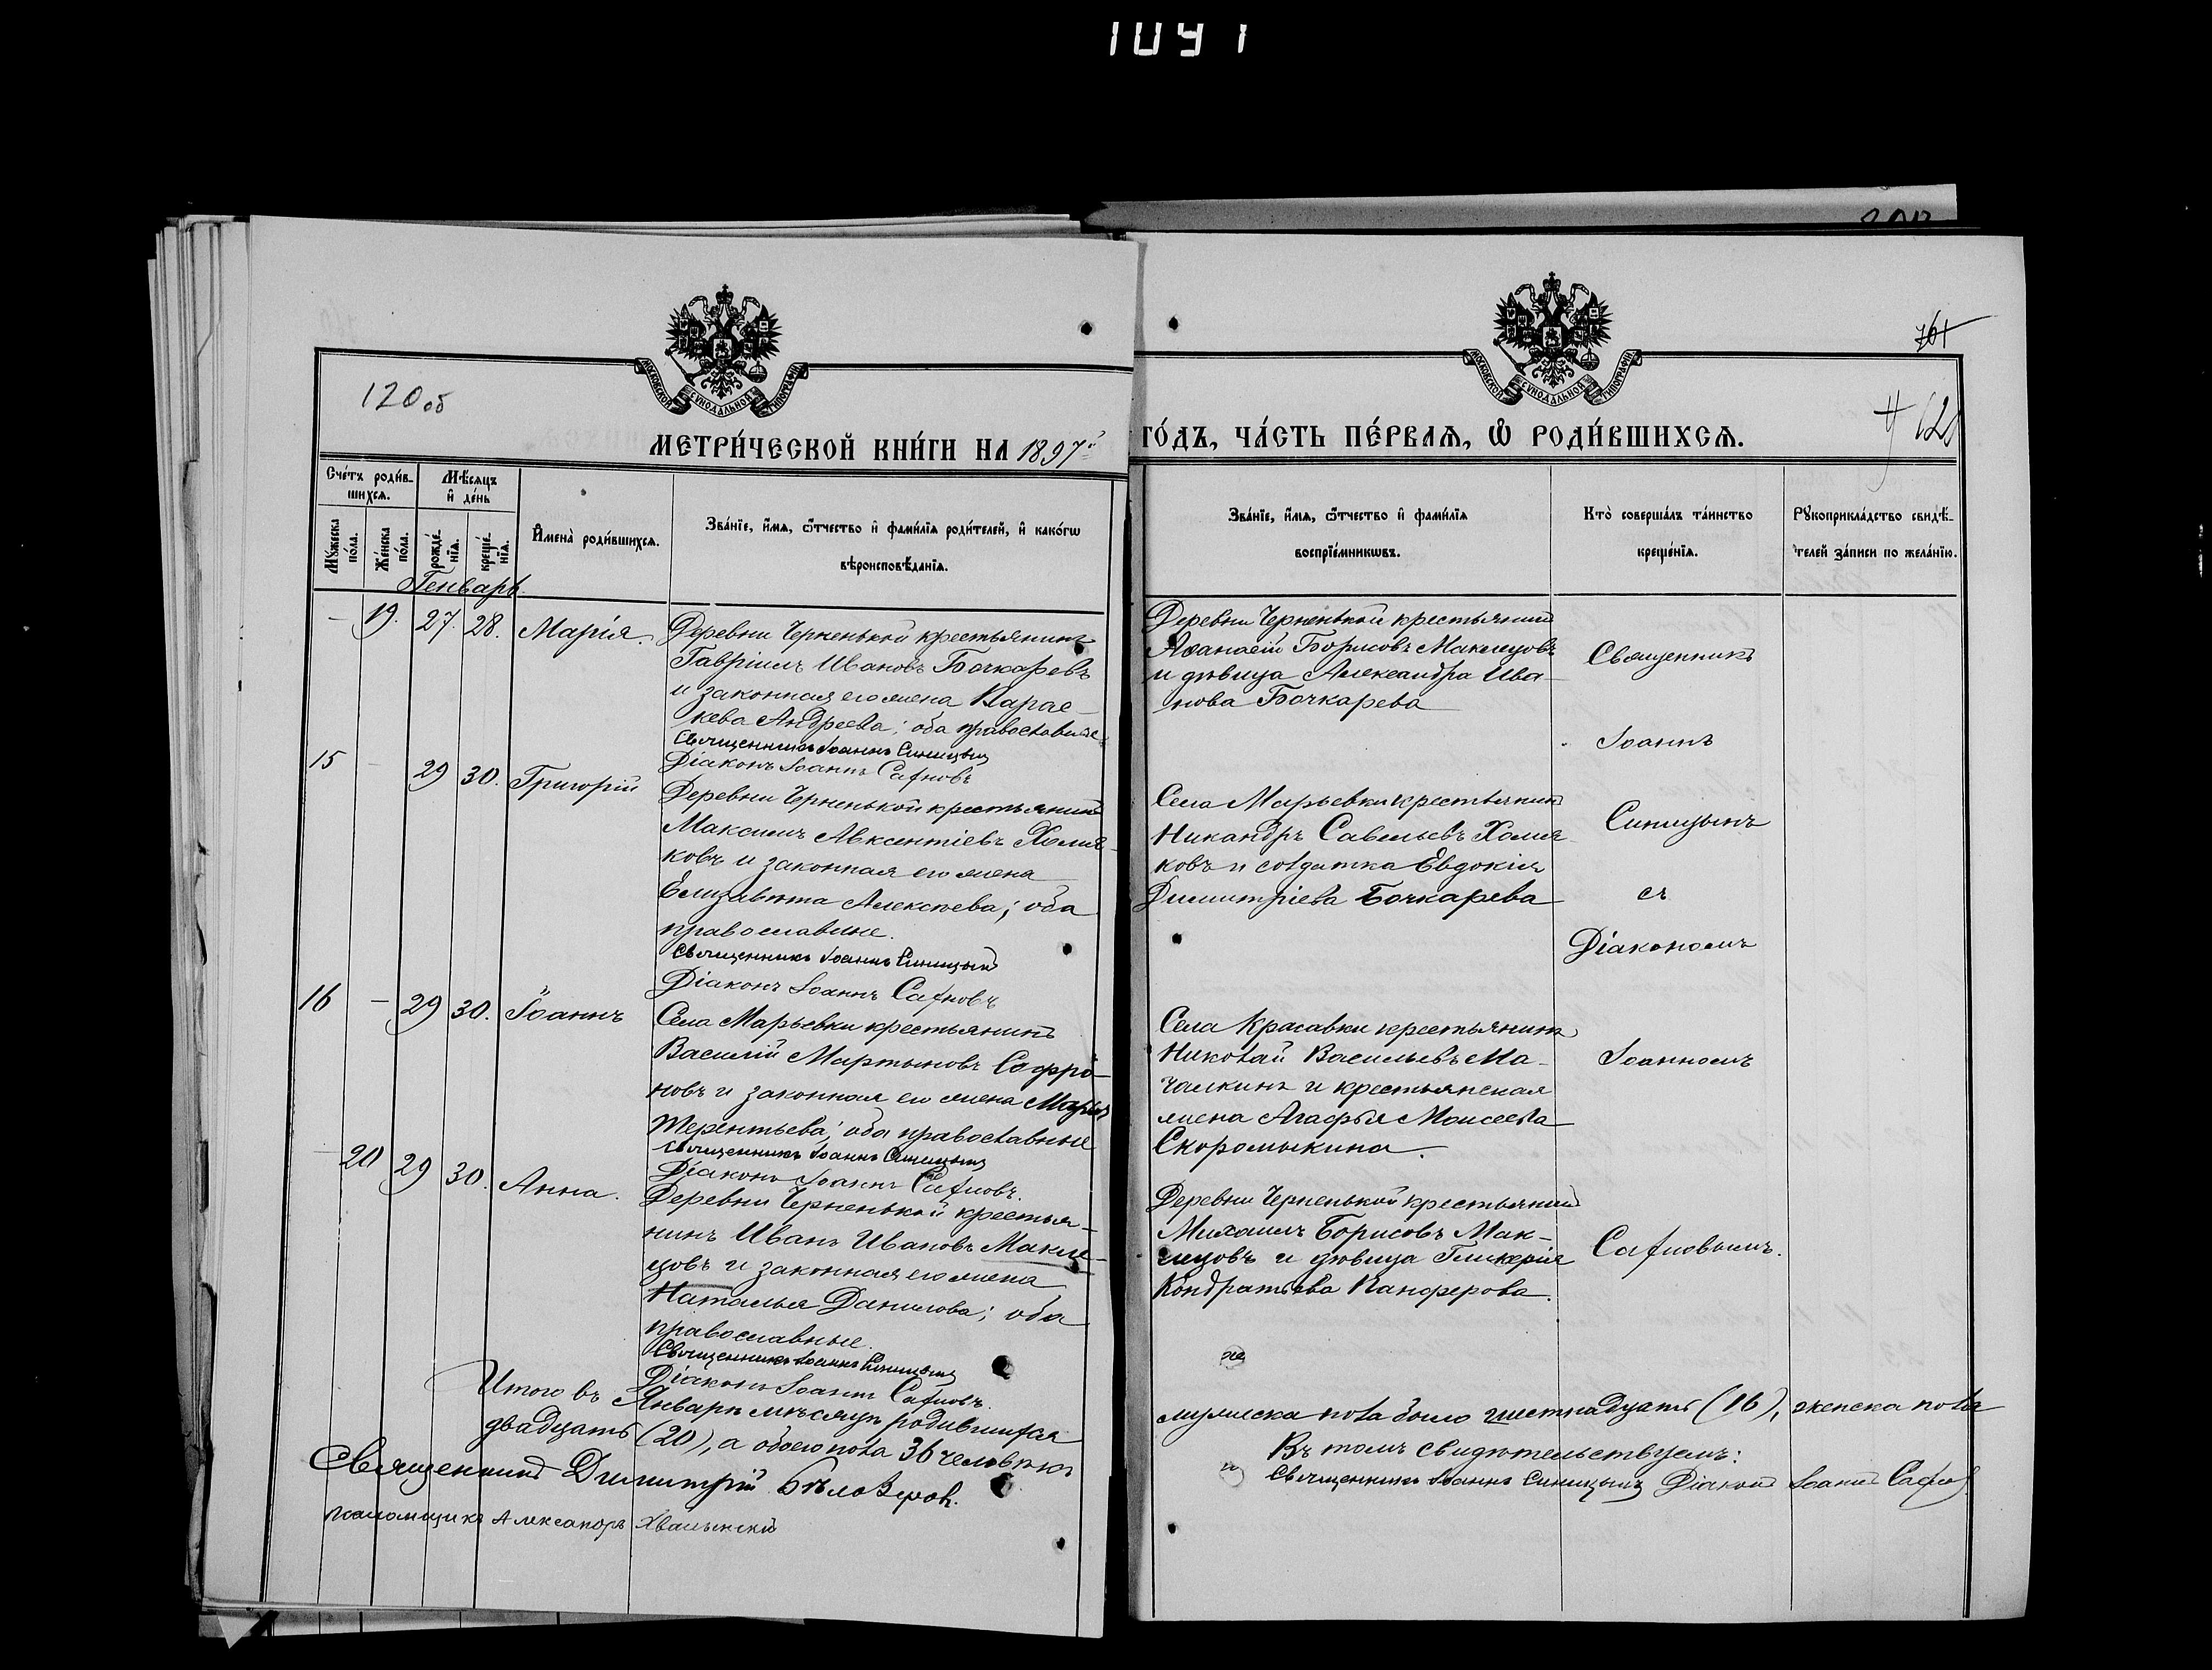 1091
761
120 об
МОСКОВСКОЙ СѴНОДАЛЬНОЙ ТИПОГРАФІИ
МОСКОВСКОЙ СѴНОДАЛЬНОЙ ТИПОГРАФІИ
МЕТРИ́ЧЕСКОЙ КНИ́ГИ НА 1897й
ГО́ДЪ, ЧА́СТЬ ПЕ́РВАЯ, Ѽ РОДИ́ВШИХСЯ.
Счéтъ роди́в-
шихся.
Мѣ́сяцъ
и҆ дéнь
Мꙋ́жеска по́ла.
Жéнска по́ла.
рождé-нїѧ.
крещé-нїѧ.
И҆менà роди́вшихсѧ.
Звáнїе, и҆́мѧ, ѻ҆́тчество и҆ фами́лїѧ роди́телей, и҆ како́гѡ
вѣроисповѣ́данїѧ.
Звáнїе, и҆́мѧ, ѻ҆́тчество и҆ фами́лїѧ
воспрїéмникѡвъ.
Кто̀ соверша́лъ та́инство
крещéнїѧ.
Рꙋкоприкла́дство свидѣ́-
телей за́писи по жела́нїю.
Генварь.
— 19. 27. 28. Марія.
Деревни Черненькой крестьянинъ
Гавріилъ Ивановъ Бочкаревъ
и законная его жена Парас-
кева Андреева; оба православные
Священникъ Іоаннъ Синицынъ
Діаконъ Іоаннъ Сафновъ
Деревни Черненькой крестьянинъ
Аѳанасій Борисовъ Маклецовъ
и дѣвица Александра Ива-
нова Бочкарева
15 — 29 30. Григорій
Деревни Черненькой крестьянинъ
Максимъ Авксентіевъ Хомя-
ковъ и законная его жена
Елизавета Алексѣева; оба
православные.
Священникъ Іоаннъ Синицынъ
Діаконъ Іоаннъ Сафновъ
Села Марьевки крестьянинъ
Никандръ Савельевъ Хомя-
ковъ и солдатка Евдокія
Димитріева Бочкарева
16 — 29 30. Іоаннъ
Села Марьевки крестьянинъ
Василій Мартыновъ Софро-
новъ и законная его жена Марья
Терентьева; оба православные
Священникъ Іоаннъ Синицынъ
Діаконъ Іоаннъ Сафновъ.
Села Красавки крестьянинъ
Николай Васильевъ Ма-
чалкинъ и крестьянская
жена Агафья Моисеева
Скоромыкина.
— 20 29 30. Анна.
Деревни Черненькой крестья-
нинъ Иванъ Ивановъ Макле-
цовъ и законная его жена
Наталья Данилова; оба
православные.
Священникъ Іоаннъ Синицынъ
Діаконъ Іоаннъ Сафновъ.
Деревни Черненькой крестьянинъ
Михаилъ Борисовъ Мак-
лецовъ и дѣвица Гликерія
Кондратьева Панферова.
Священникъ
Іоаннъ
Синицынъ
съ
Діакономъ
Іоанномъ
Сафновымъ.
Итого въ Январѣ мѣсяцѣ родившихся
мужеска пола было шестнадцать (16), женска пола
двадцать (20), а обоего пола 36 человѣкъ
Въ томъ свидѣтельствуемъ:
Священникъ Іоаннъ Синицынъ Діаконъ Іоаннъ Сафновъ
Священникъ Димитрій Бѣлозеровъ.
псаломщикъ Александръ Хвалынскій